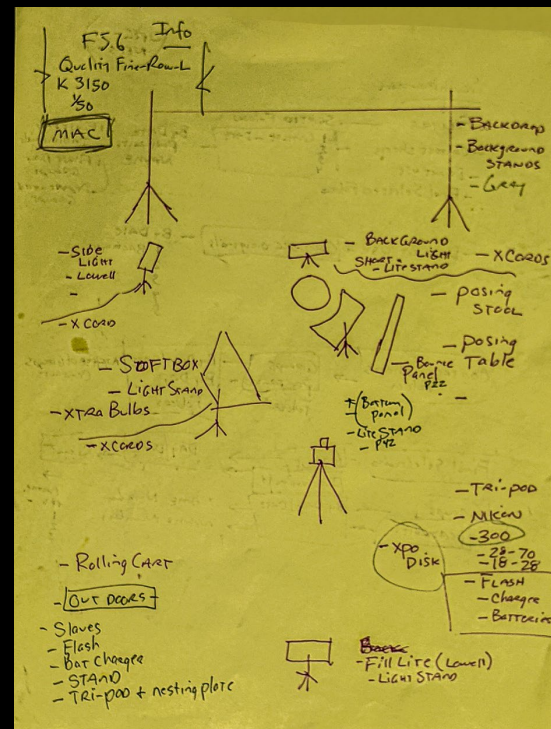 Info
F5.6
Quality Fine-Row-L
K 3150
1/50
MAC
- BACKDROP
- Background
STANDS
- Gray
- Side
Light
- Lowell
-
- X CORD
- BACKGROUND
Light
SHORT
- LiteStand
- XCORDS
- Posing
Stool
- Posing
Table
- Bounce
Panel
P22
-
+ (Bottom
panel)
- Lite STAND
- P42
- SOFTBOX
- Light Stand
- XTRA Bulbs
- XCORDS
- TRI-POD
- NIKON
- 300
- 28-70
- 18-28
- XPO
DISK
- FLASH
- Charger
- Batteries
- Rolling CART
- OUT DOORS
- Slaves
- Flash
- Bat Charger
- STAND
- TRI-POD + nesting plate
- Fill Lite (Lowell)
- Light STAND